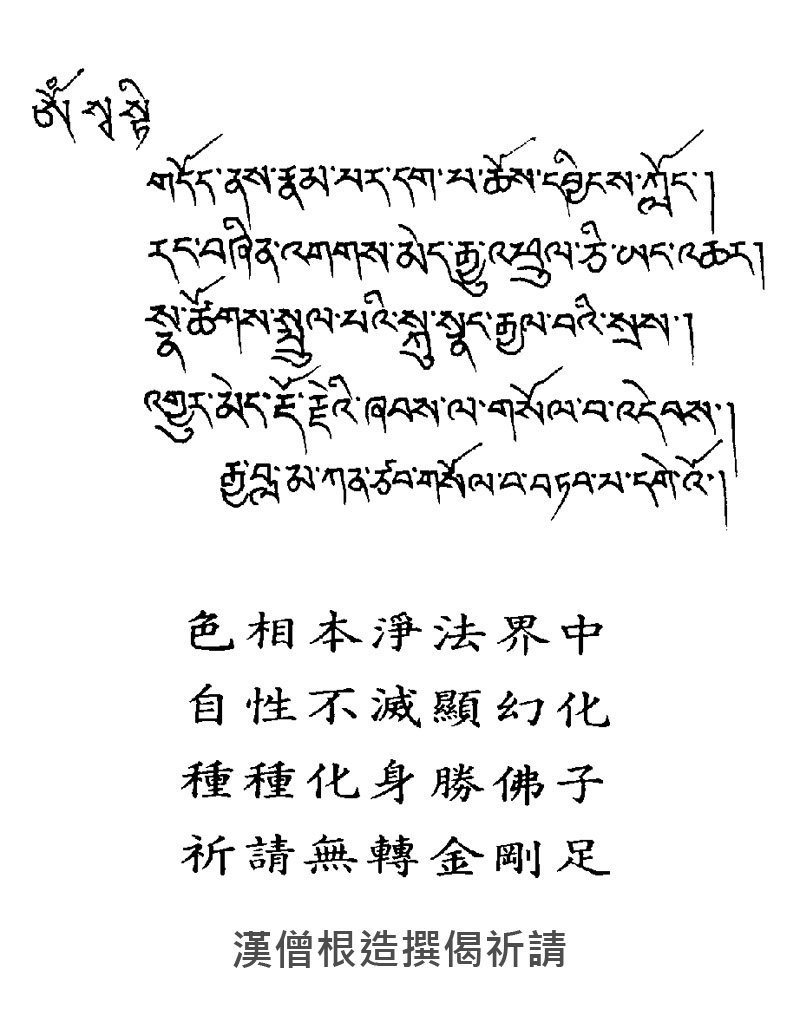 ཨོཾ་སྭ་སྟི
གདོད་ནས་རྣམ་པར་དག་པ་ཆོས་དབྱིངས་ཀློང་།
རང་བཞིན་འགགས་མེད་རྒྱུ་འཕྲུལ་ཅི་ཡང་འཆར།
སྣ་ཚོགས་སྤྲུལ་པའི་སྐུ་སྣང་རྒྱལ་བའི་སྲས་།
འགྱུར་མེད་རྡོ་རྗེའི་ཞབས་ལ་གསོལ་བ་འདེབས་།
རྒྱ་བླ་མ་ཀན་ཙབ་གསོལ་བ་བཏབ་པ་དགེ་འོ་།
色相本淨法界中
自性不滅顯幻化
種種化身勝佛子
祈請無轉金剛足
漢僧根造撰偈祈請